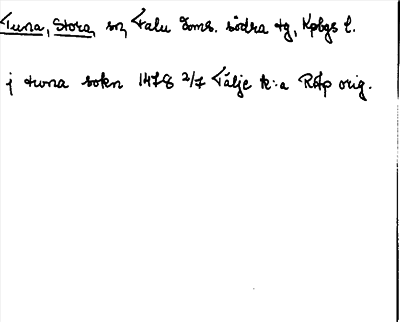 Tuna, Stora, sn, Falu Doms. södra tg, Kpbgs l.
j twna sokn 1478 2/7 Fälje k:a RAp orig.